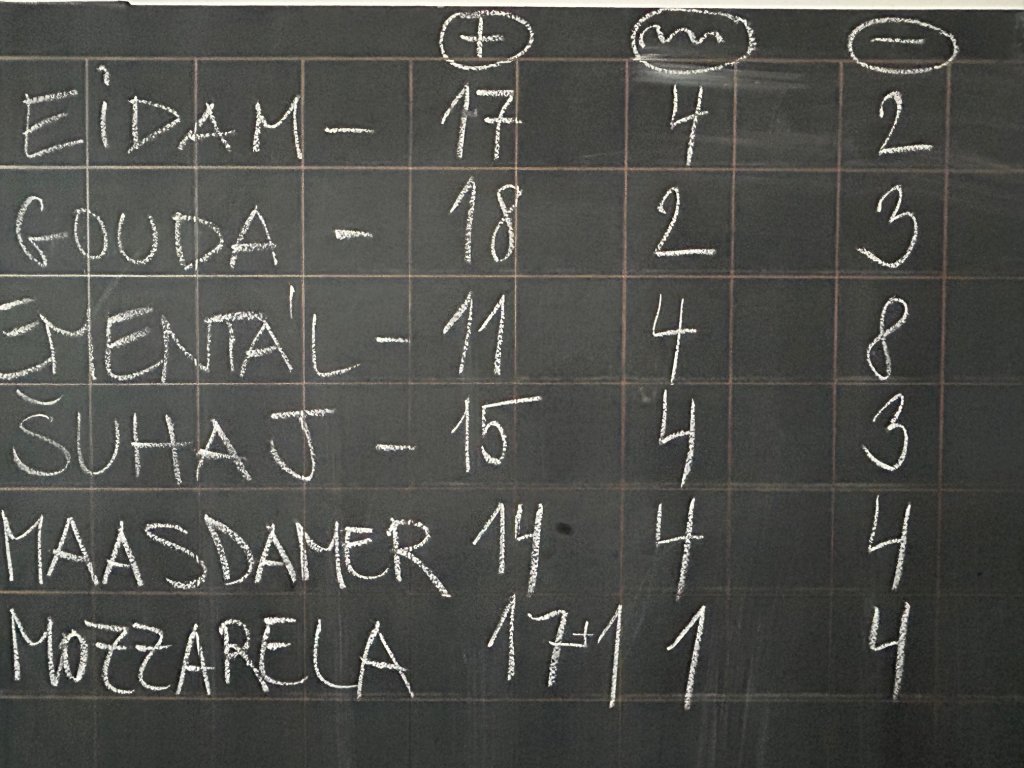 + 〰 −
EİDAM – 17 4 2
GOUDA – 18 2 3
EMENTÁL – 11 4 8
ŠUHAJ – 15 4 3
MAASDAMER 14 4 4
MOZZARELA 17+1 1 4